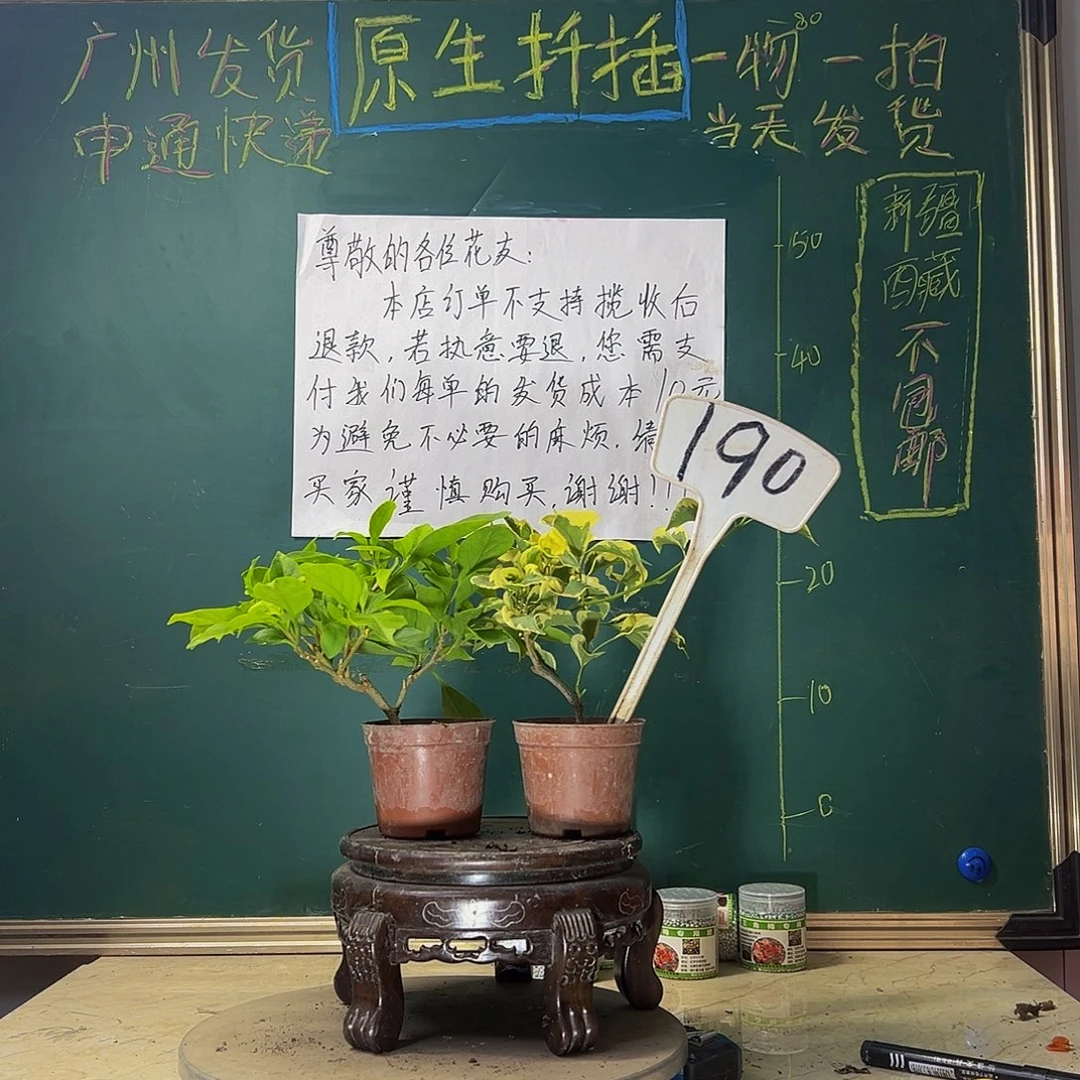 广州发货
申通快递
原生扦插
一物一拍
当天发货
新疆
西藏
不包邮
尊敬的各位花友:
本店订单不支持揽收后
退款,若执意要退,您需支
付我们每单的发货成本10元
为避免不必要的麻烦,请
买家谨慎购买,谢谢!!!
190
50
40
20
10
0